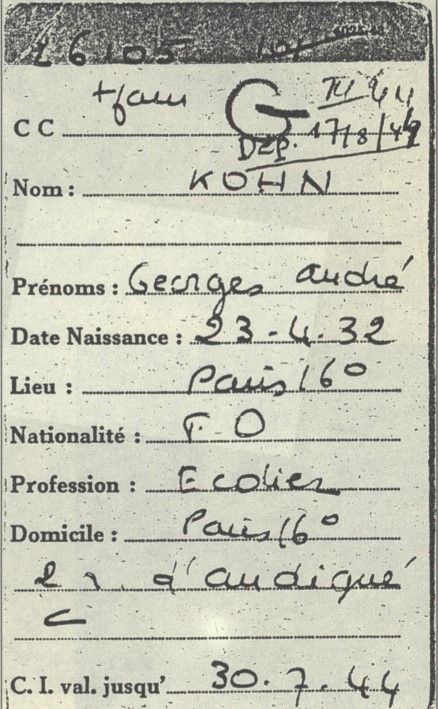 26105
+ fam
G
C C
DEP. 17/8/44
Nom : KOHN
Prénoms : Georges André
Date Naissance : 23-4.32
Lieu : Paris 16°
Nationalité : F. O
Profession : Ecolier
Domicile : Paris 16°
2 r. d'andigné
C
C. I. val. jusqu' 30.7.44